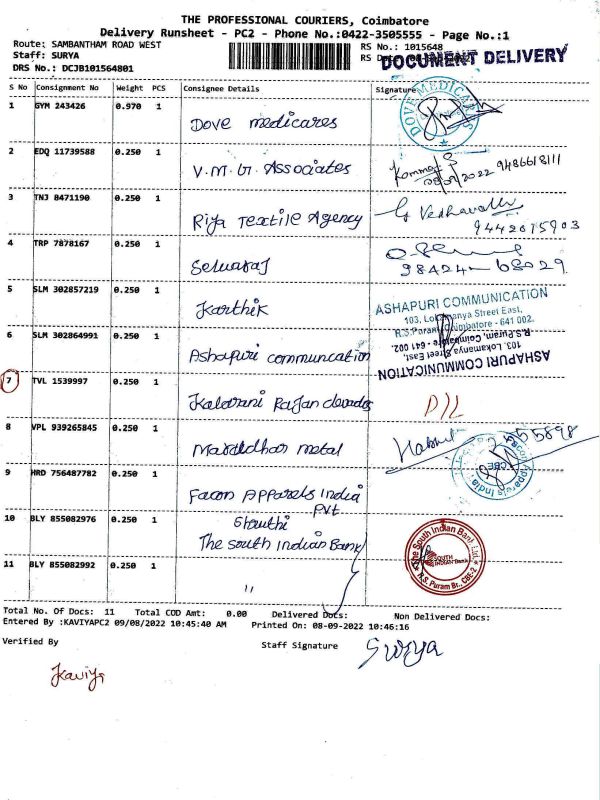 THE PROFESSIONAL COURIERS, Coimbatore
Delivery Runsheet - PC2 - Phone No.:0422-3505555 - Page No.:1
Route: SAMBANTHAM ROAD WEST
RS No.: 1015648
Staff: SURYA
RS
DOCUMENT DELIVERY
DRS No.: DCJB101564801
S No Consignment No Weight PCS Consignee Details Signature
1 GYM 243426 0.970 1
Dove medicares
DOVE MEDICARES
2 EDQ 11739588 0.250 1
V.M.G Associates
9486618111
3 TNJ 8471190 0.250 1
Riya Textile Agency
G Vedhavalli
9442015903
4 TRP 7878167 0.250 1
Selvaraj
98424-68029
5 SLM 302857219 0.250 1
Karthik
ASHAPURI COMMUNICATION
103, Lokamanya Street East,
R.S.Puram, Coimbatore - 641 002.
6 SLM 302864991 0.250 1
Ashapuri communcation
ASHAPURI COMMUNICATION
103, Lokamanya Street East,
R.S.Puram, Coimbatore - 641 002.
7 TVL 1539997 0.250 1
Kalarani Rajan
D/L
8 VPL 939265845 0.250 1
Marddhar metal
9 HRD 756487782 0.250 1
Facon Apparels India
Pvt
Facon Apparels India
CBE
10 BLY 855082976 0.250 1
Shruthi
The south Indian Bank
The South Indian Bank Ltd.
SOUTH
INDIAN Bank
R.S. Puram Br., CBE-2
11 BLY 855082992 0.250 1
"
Total No. Of Docs: 11 Total COD Amt: 0.00 Delivered Docs: Non Delivered Docs:
Entered By :KAVIYAPC2 09/08/2022 10:45:40 AM Printed On: 08-09-2022 10:46:16
Verified By
Staff Signature
Surya
Kaviya